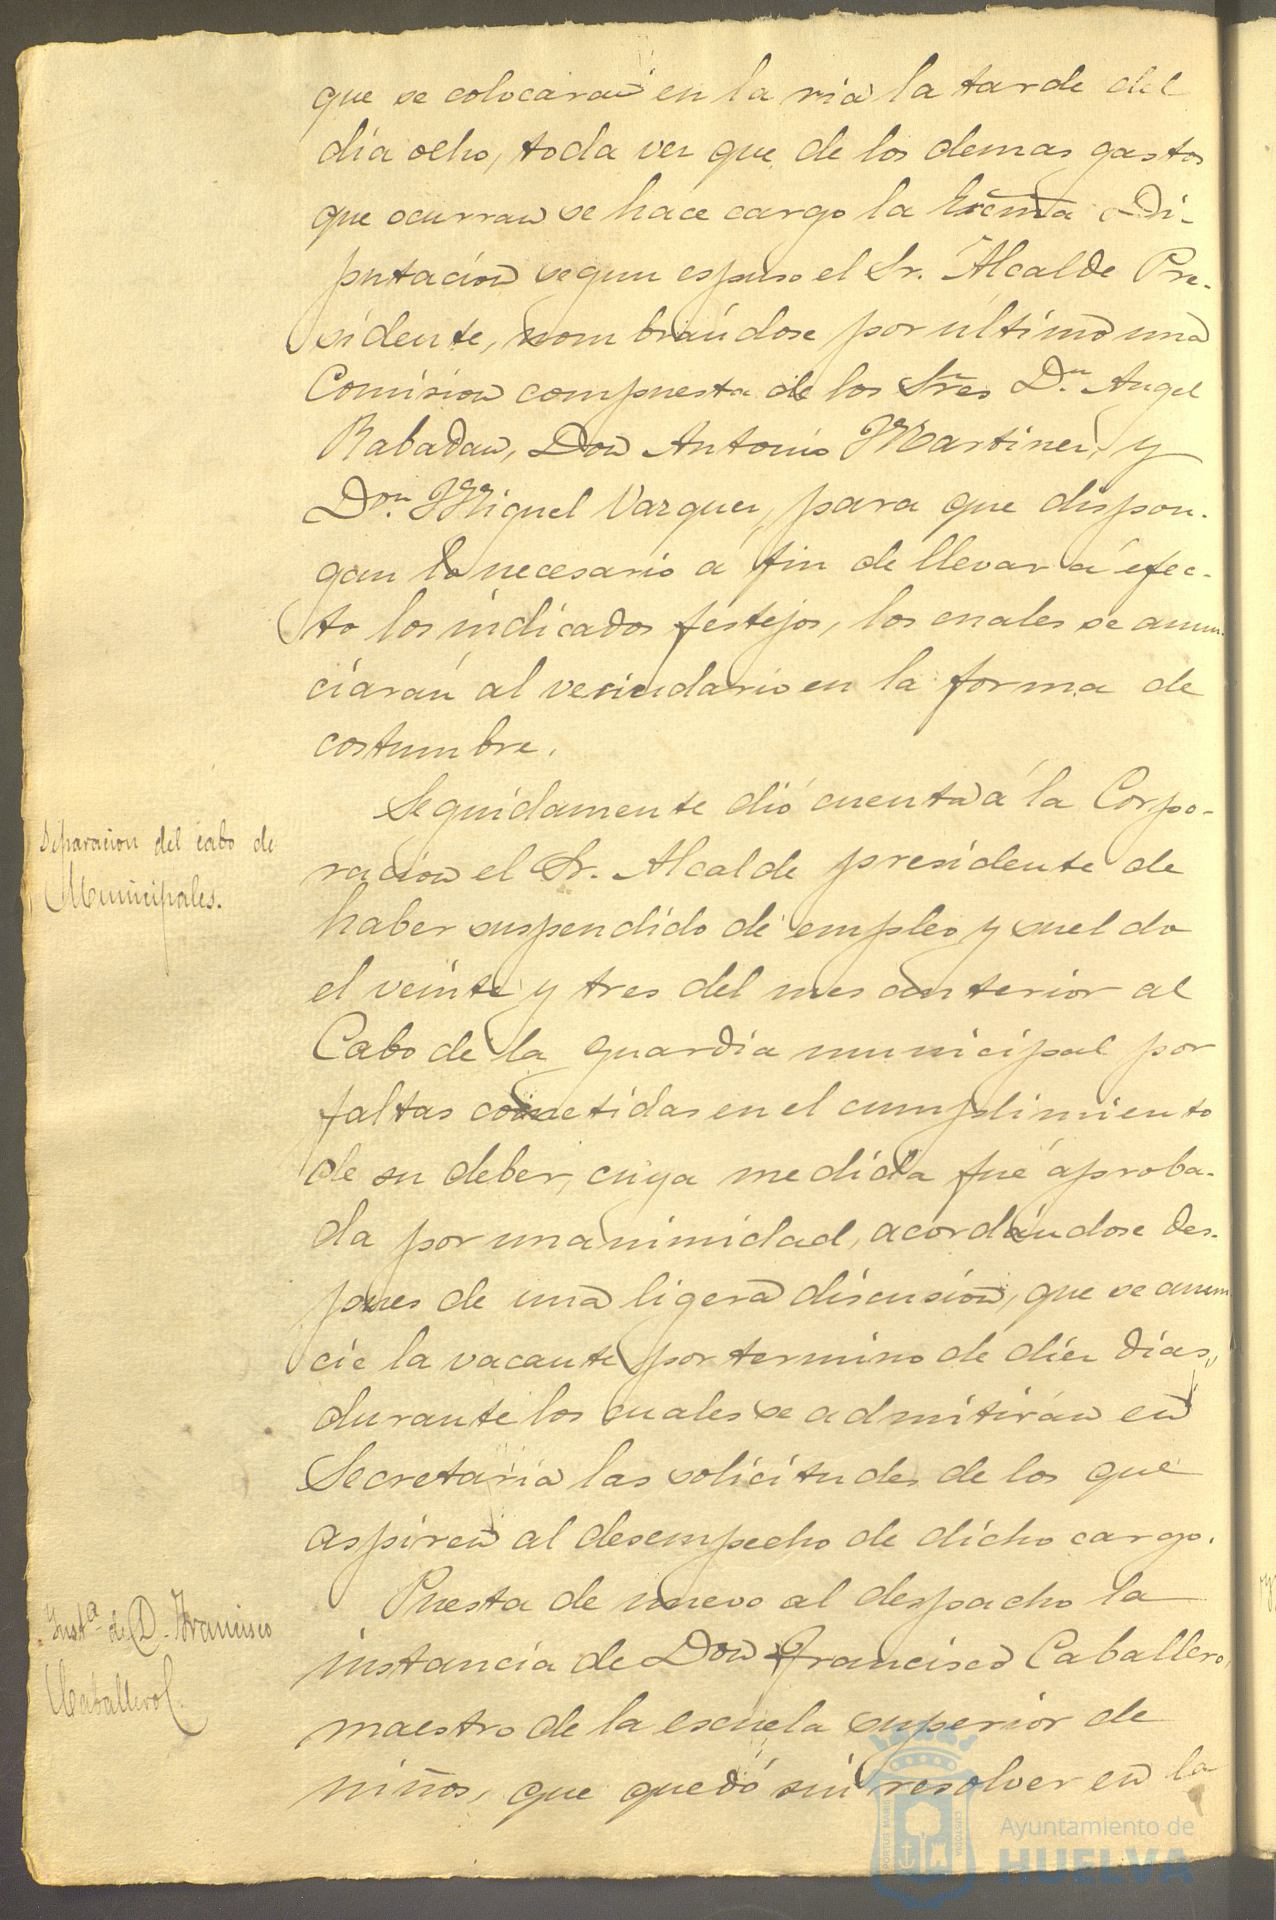 que se colocarán en la ria la tarde del
día ocho, toda vez que de los demas gastos
que ocurran se hace cargo la Excma Di-
putacion segun espuso el Sr. Alcalde Pre-
sidente, nombrándose por último una
Comision compuesta de los Sres Dn. Angel
Rabadan, Don Antonio Martinez, y
Don. Miguel Vazquez, para que dispon-
gan lo necesario á fin de llevar á efec-
to los indicados festejos, los cuales se anun-
ciarán al vecindario en la forma de
costumbre.
Separacion del cabo de
Municipales.
Seguidamente dió cuenta á la Corpo-
racion el Sr. Alcalde presidente de
haber suspendido de empleo y sueldo
el veinte y tres del mes anterior al
Cabo de la guardia municipal por
faltas cometidas en el cumplimiento
de su deber, cuya medida fué aproba-
da por unanimidad, acordándose des-
pues de una ligera discusion, que se anun
cie la vacante por termino de diez dias,
durante los cuales se admitirán en
Secretaría las solicitudes de los que
aspiren al desempecho de dicho cargo.
Insta. de D. Francisco
Caballero
Puesta de nuevo al despacho la
instancia de Don Francisco Caballero,
maestro de la escuela superior de
niños, que quedó sin resolver en la
PORTUS MARIS
CUSTODIA
Ayuntamiento de
HUELVA